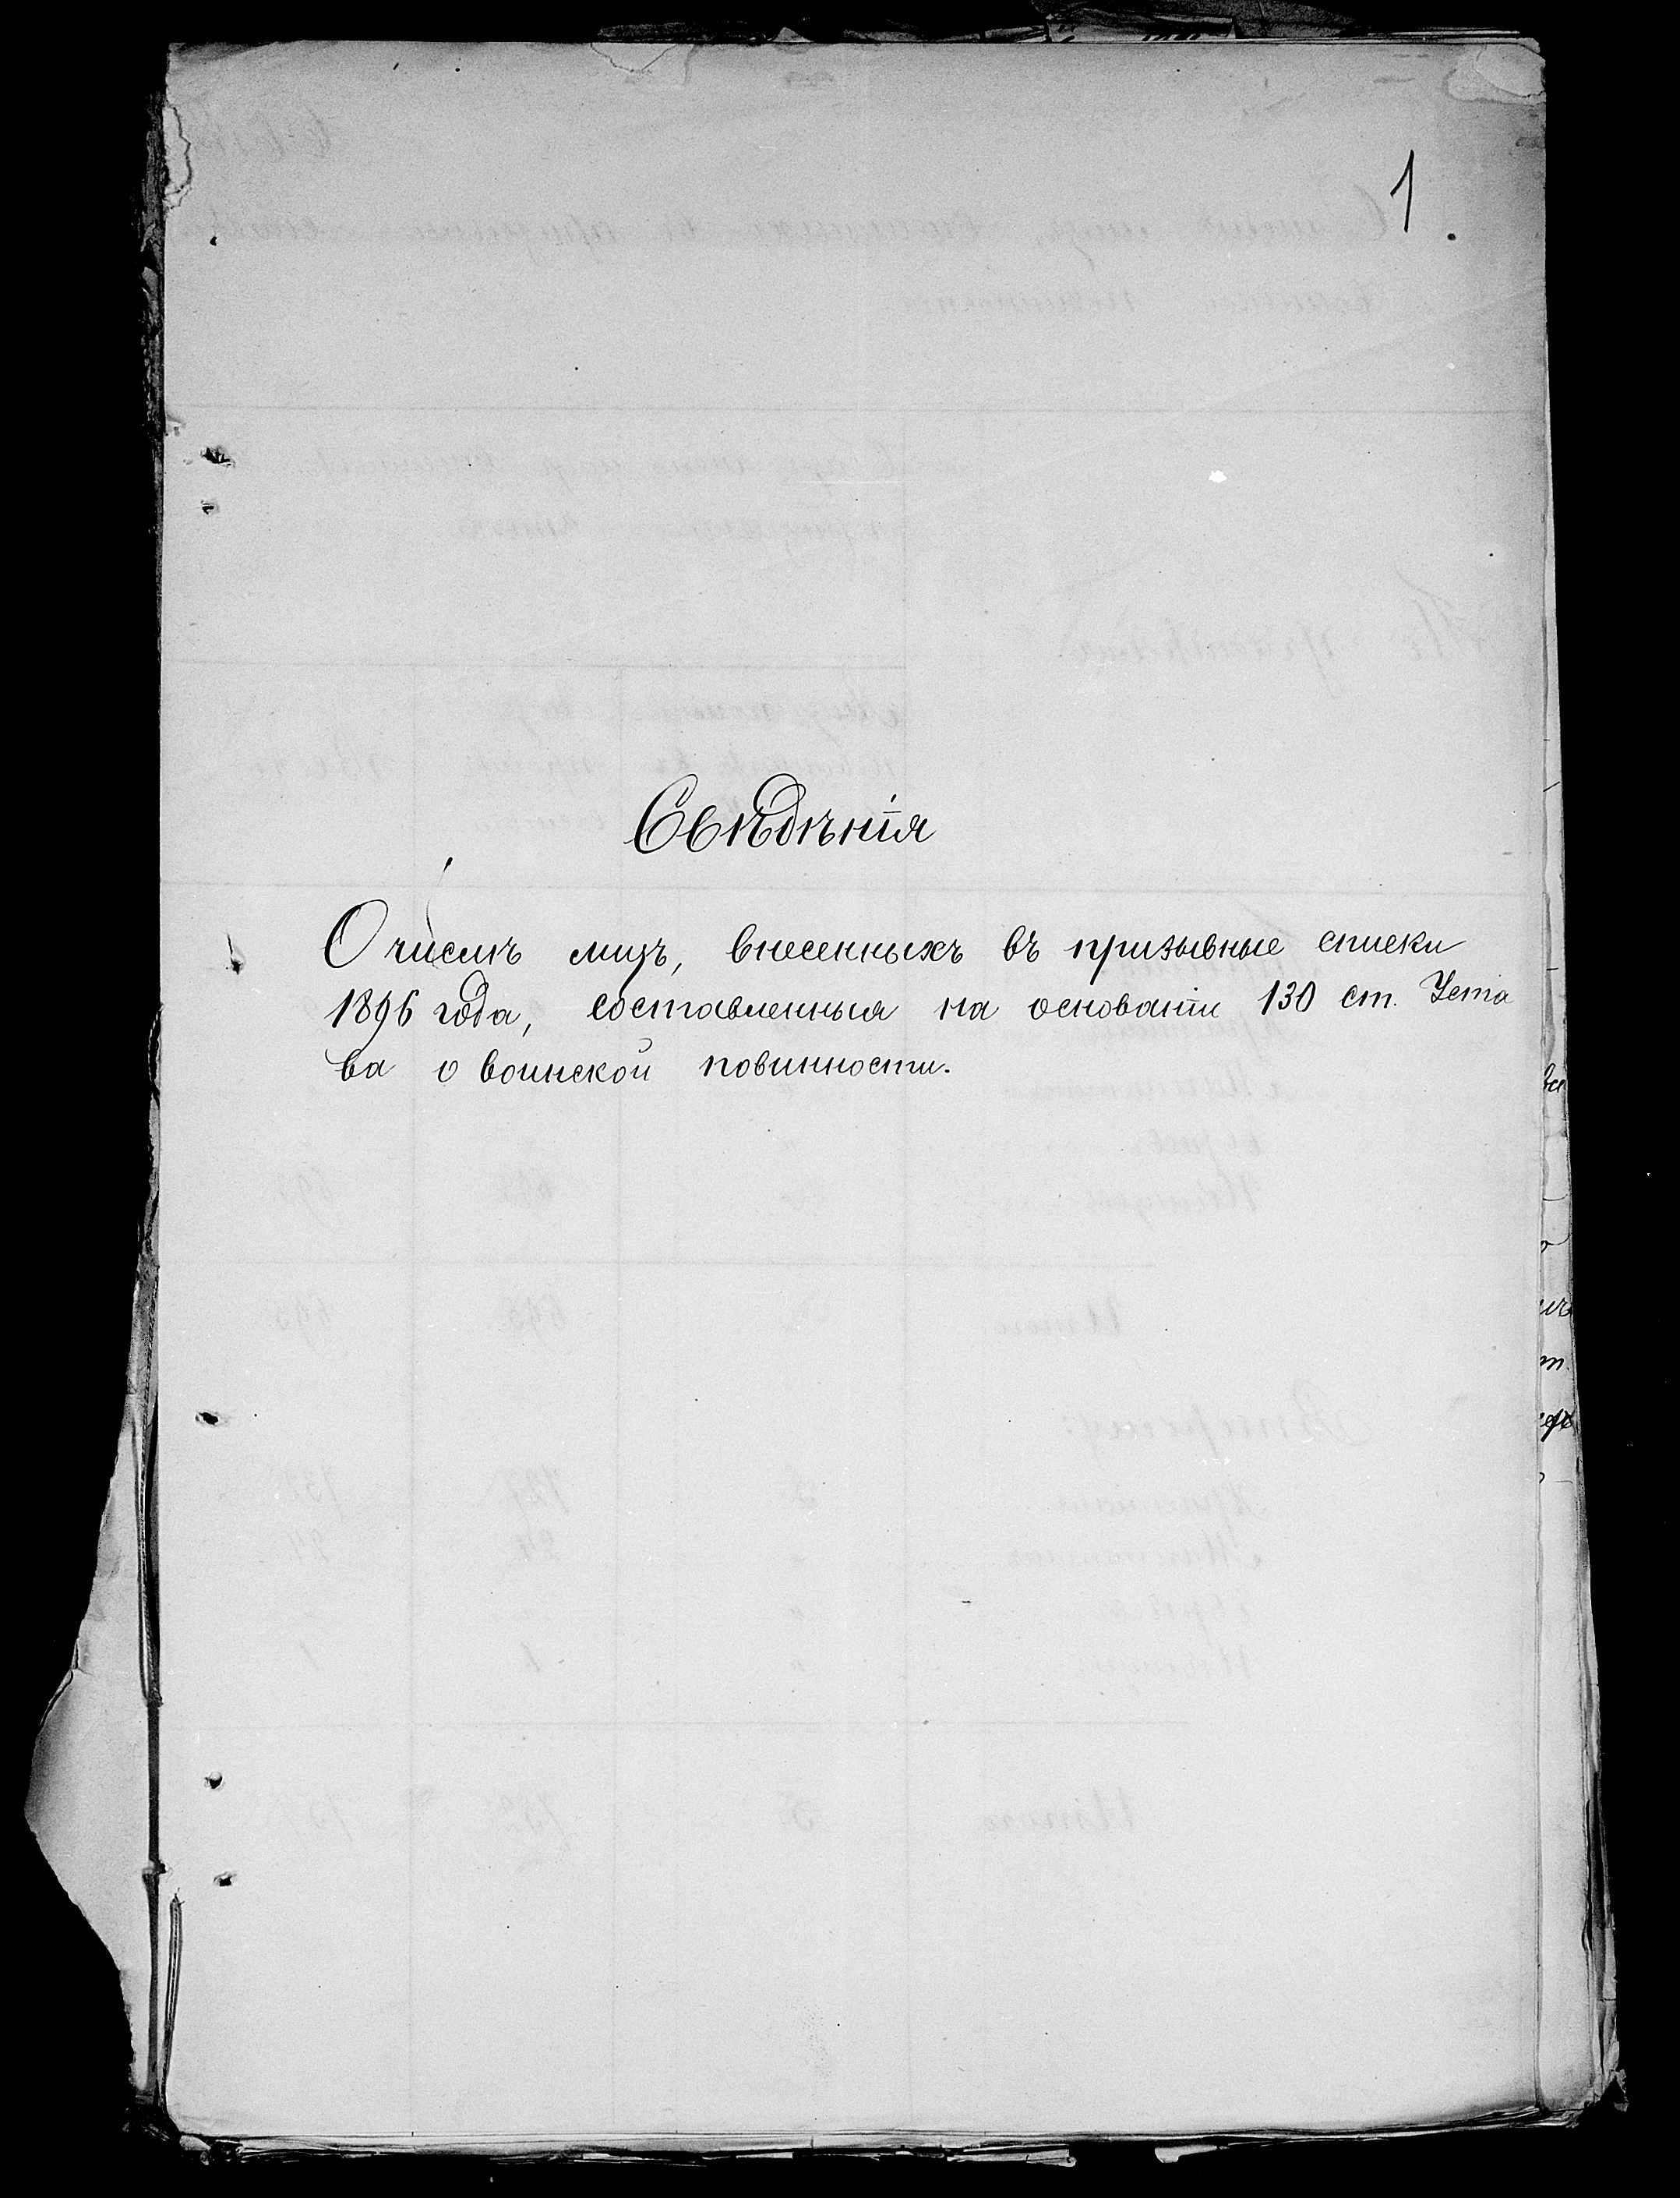 1.
Свѣдѣнія
О числѣ лицъ, внесенныхъ въ призывные списки
1896 года, составленныя на основаніи 130 ст. Уста
ва о воинской повинности.